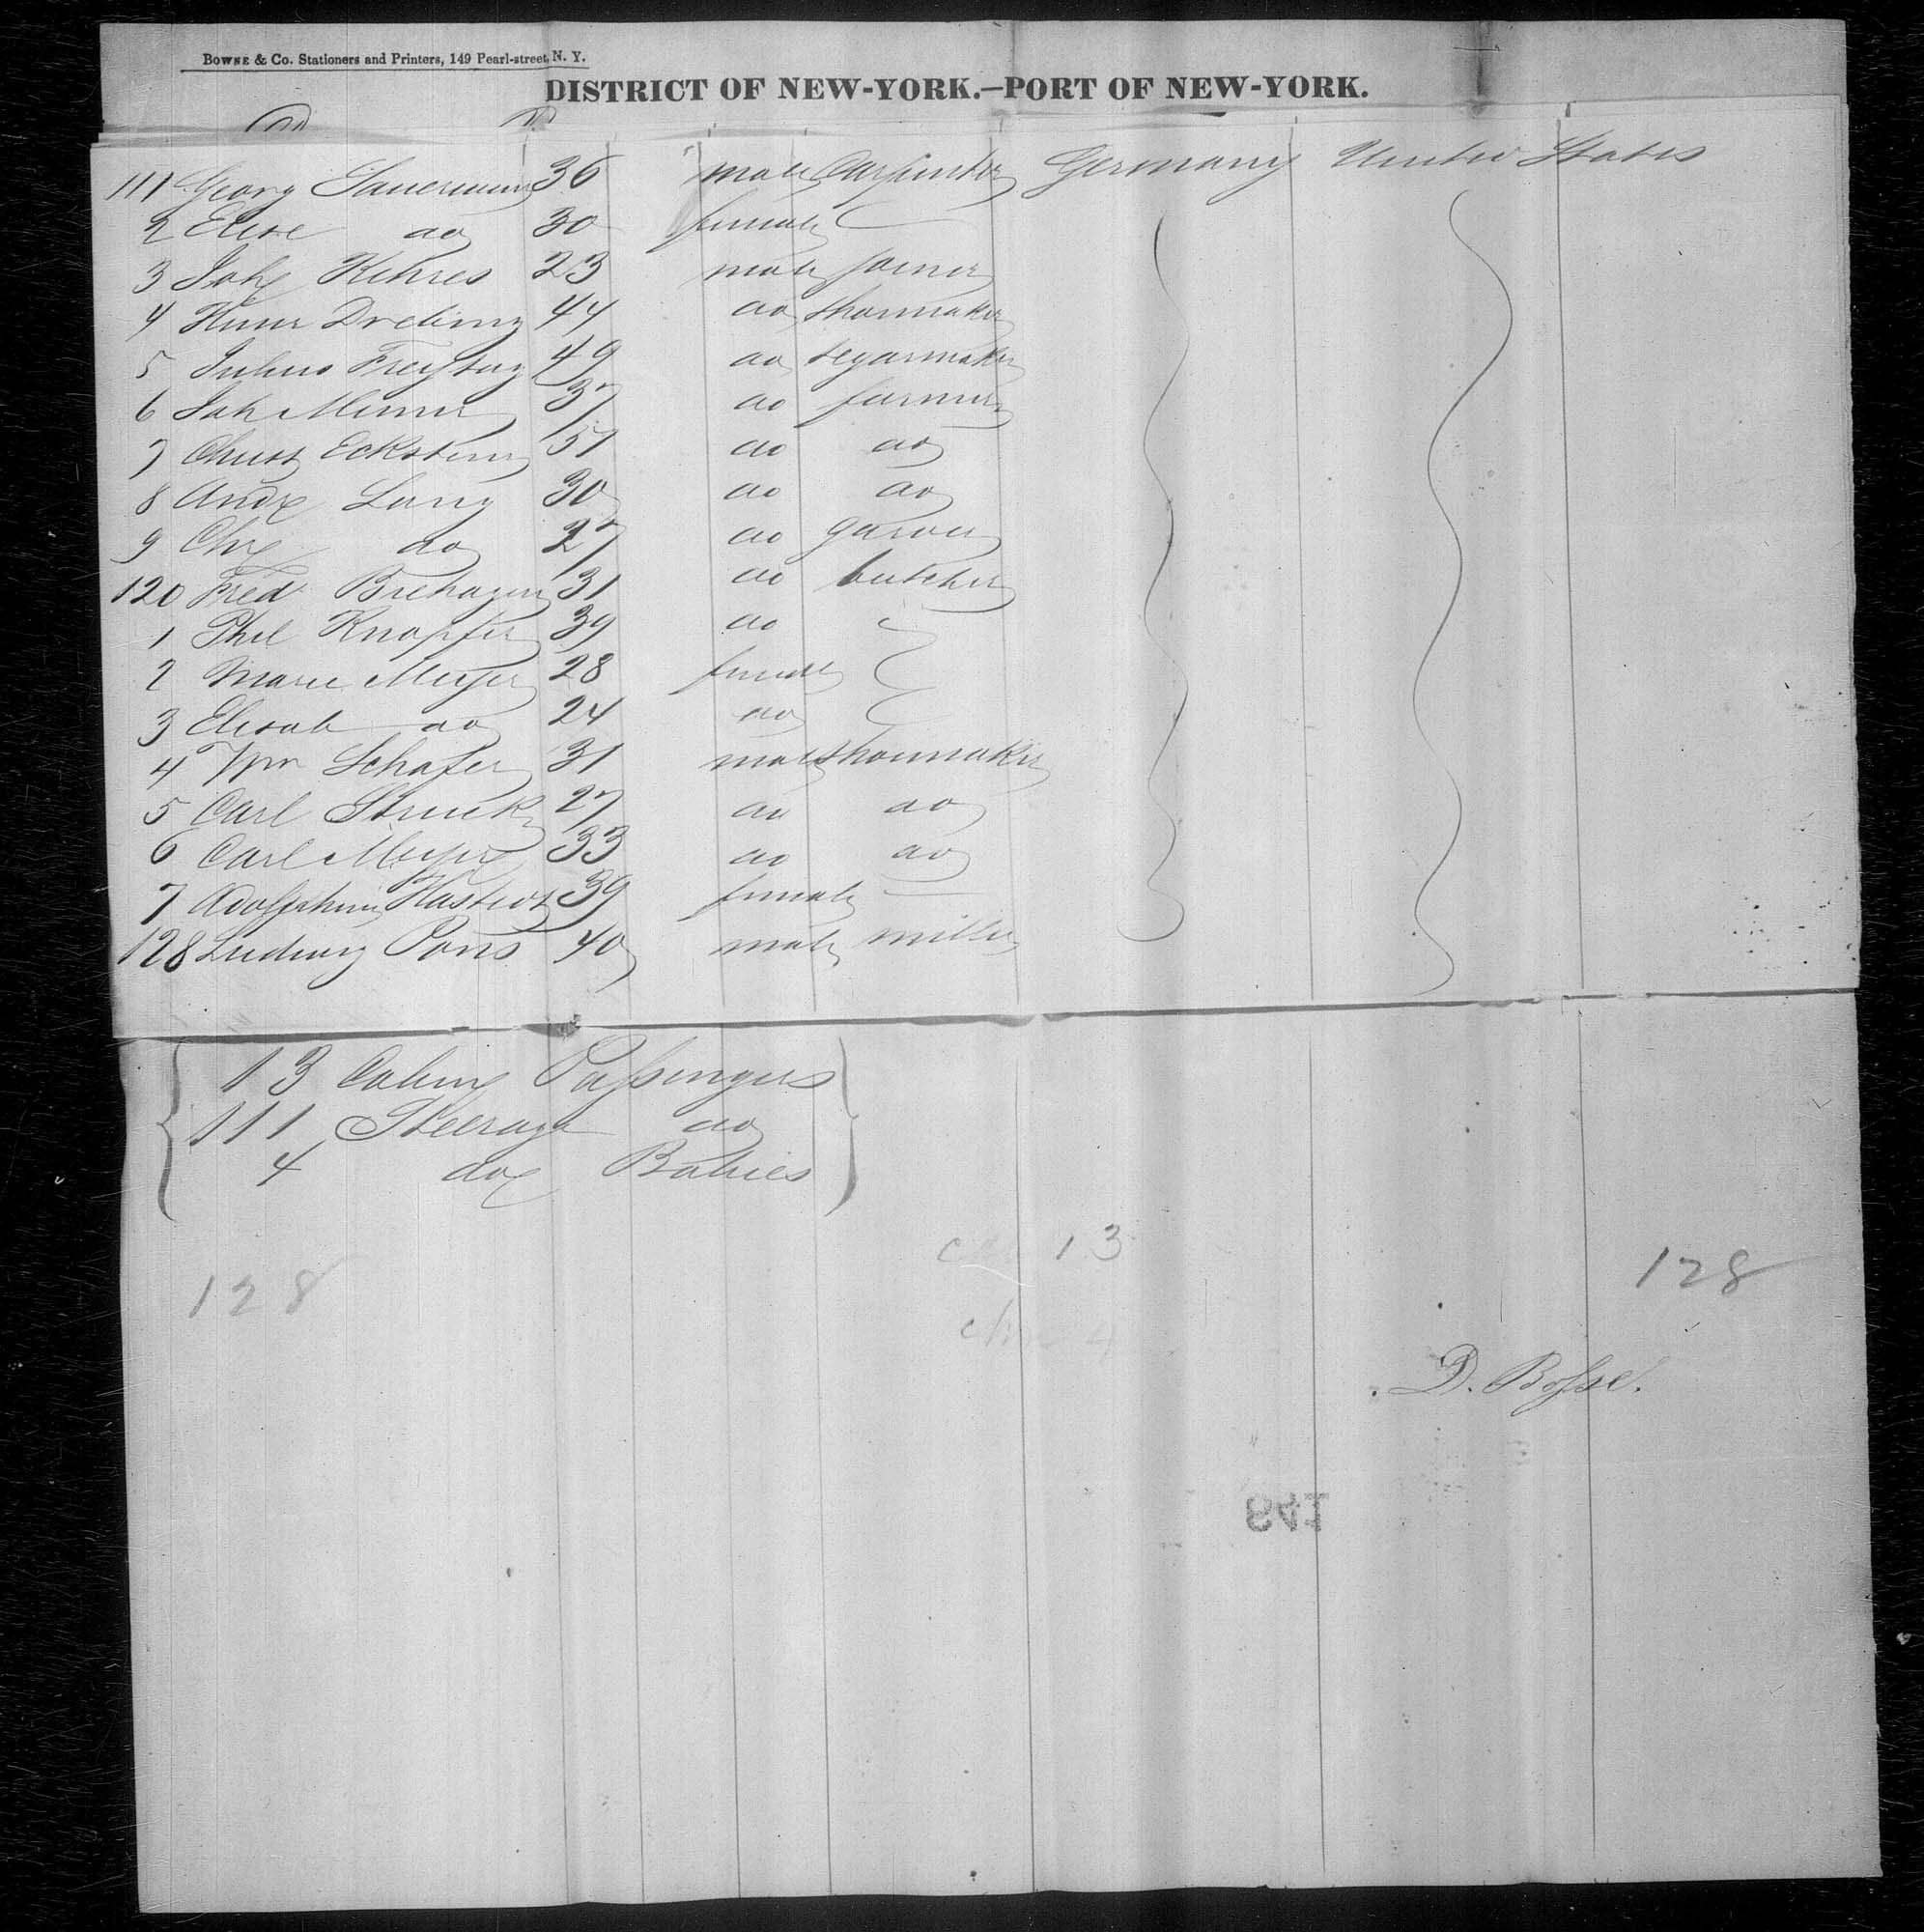 BOWNE & Co. Stationers and Printers, 149 Pearl-street, N. Y.
DISTRICT OF NEW-YORK.—PORT OF NEW-YORK.
111 Georg 36 male Carpenter Germany United States
2 Elise do 30 female
3 Joh Kehres 23 male joiner
4 Dreking 44 do shoemaker
5 Julius Freytag 49 do segarmaker
6 Joh 37 do farmer
7 Christ Eckstein 51 do do
8 Andr Lang 30 do do
9 Chr do 27 do
120 Fred Brehagen 31 do butcher
1 Phil Knopfer 39 do
2 Marie Meyer 28 female
3 Elisab do 24 do
4 Wm Schafer 31 male shoemaker
5 Carl Struck 27 do do
6 Carl Meyer 33 do do
7 Adolphine Hastedt 39 female
128 Ludwig Pons 40 male miller
13 Cabin Passengers
111 Steerage do
4 do Babies
13
128 128
4
D. Bosse.
641